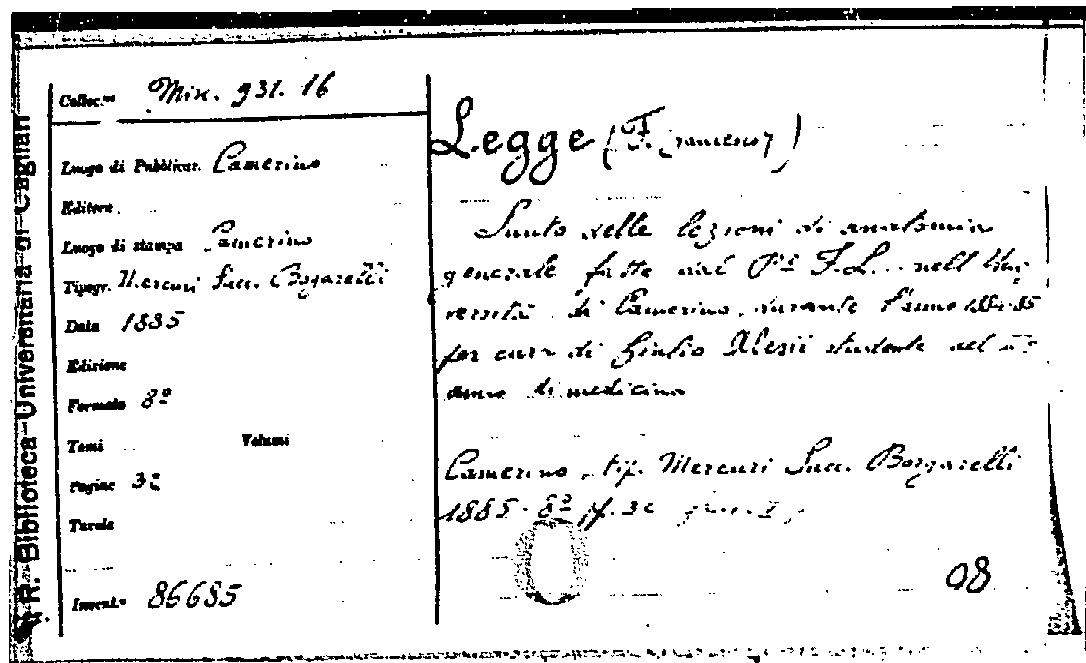 R. Biblioteca Universitaria di Cagliari
Colloc.ne Misc. 931. 16
Luogo di Pubblicaz. Camerino
Editore
Luogo di stampa Camerino
Tipogr. Mercuri Succ. Borgarelli
Data 1885
Edizione
Formato 8º
Tomi Volumi
Pagine 32
Tavole
Invent.º 86685
Legge (F. Francesco)
Sunto delle lezioni di anatomia
generale fatte dal P.e F. L. nell' Uni
versità di Camerino, durante l'anno 1884-85
per cura di Giulio Alesii studente del
anno di medicina
Camerino, tip. Mercuri Succ. Borgarelli
1885. 8º p. 32
08